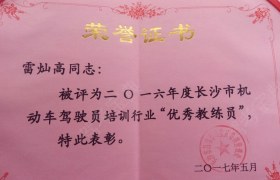 荣誉证书
雷灿高同志：
被评为二〇一六年度长沙市机
动车驾驶员培训行业“优秀教练员”，
特此表彰。
二〇一七年五月